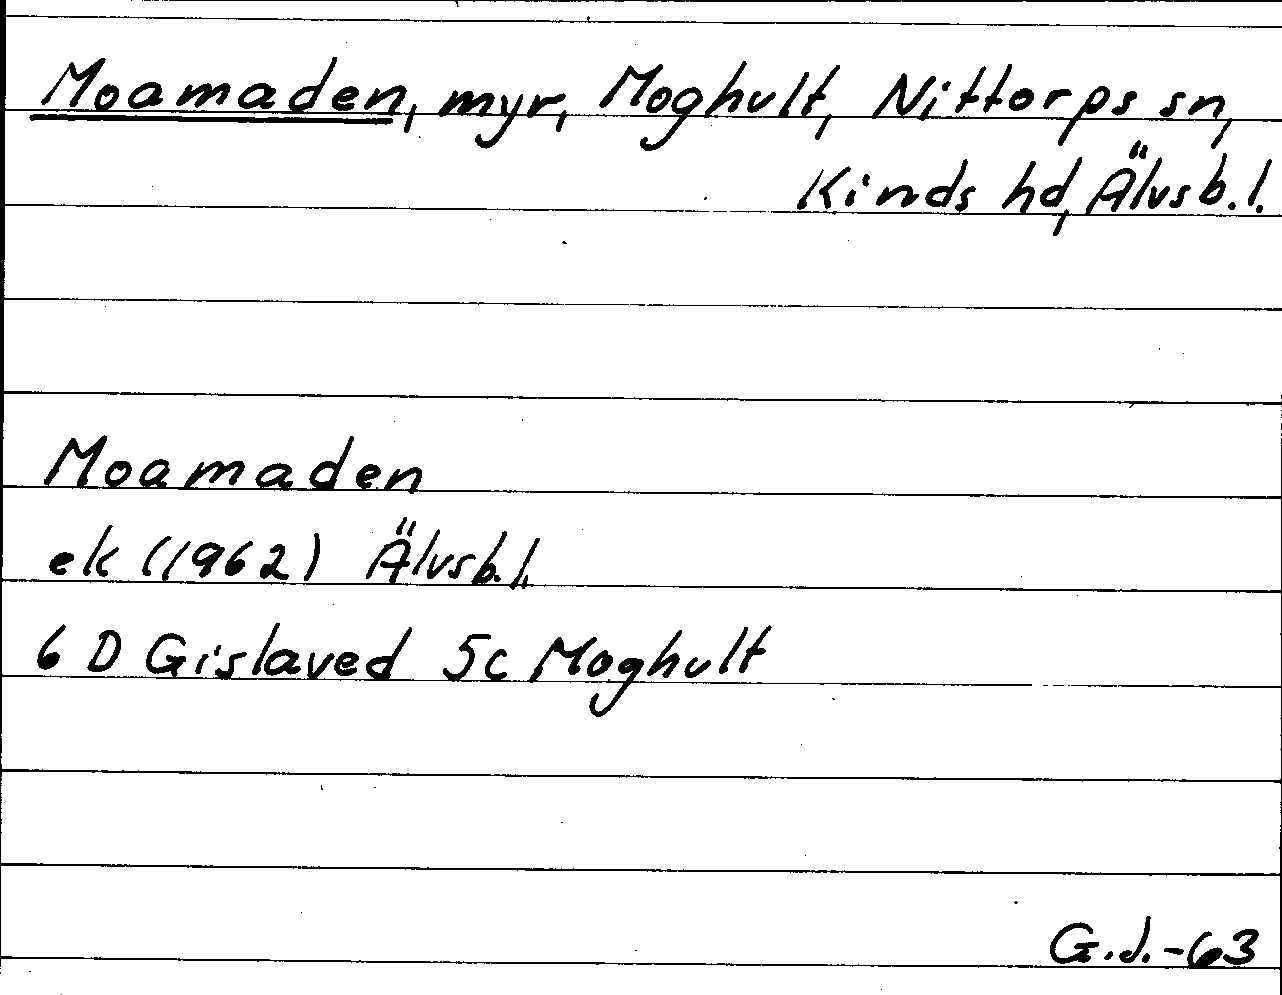 Moamaden, myr, Moghult, Nittorps sn,
Kinds hd, Älvsb. l.
Moamaden
ek (1962) Älvsb. l.
6 D Gislaved 5c Moghult
G.J.-63